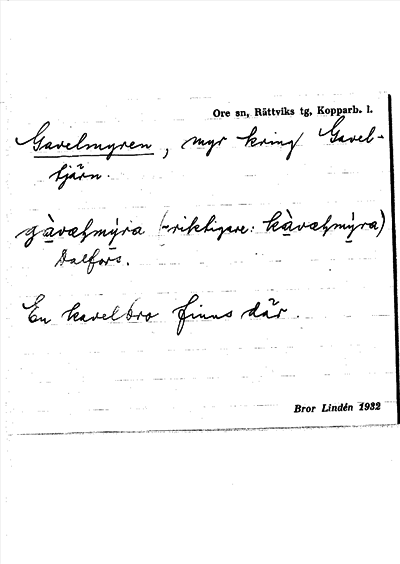 Ore sn, Rättviks tg, Kopparb. l.
Gavelmyren, myr kring Gavel-
tjärn.
gàvæɫmýra (-riktigare: kàvæɫmýra)
Dalfors.
En kavelbro finns där.
Bror Lindén 1932